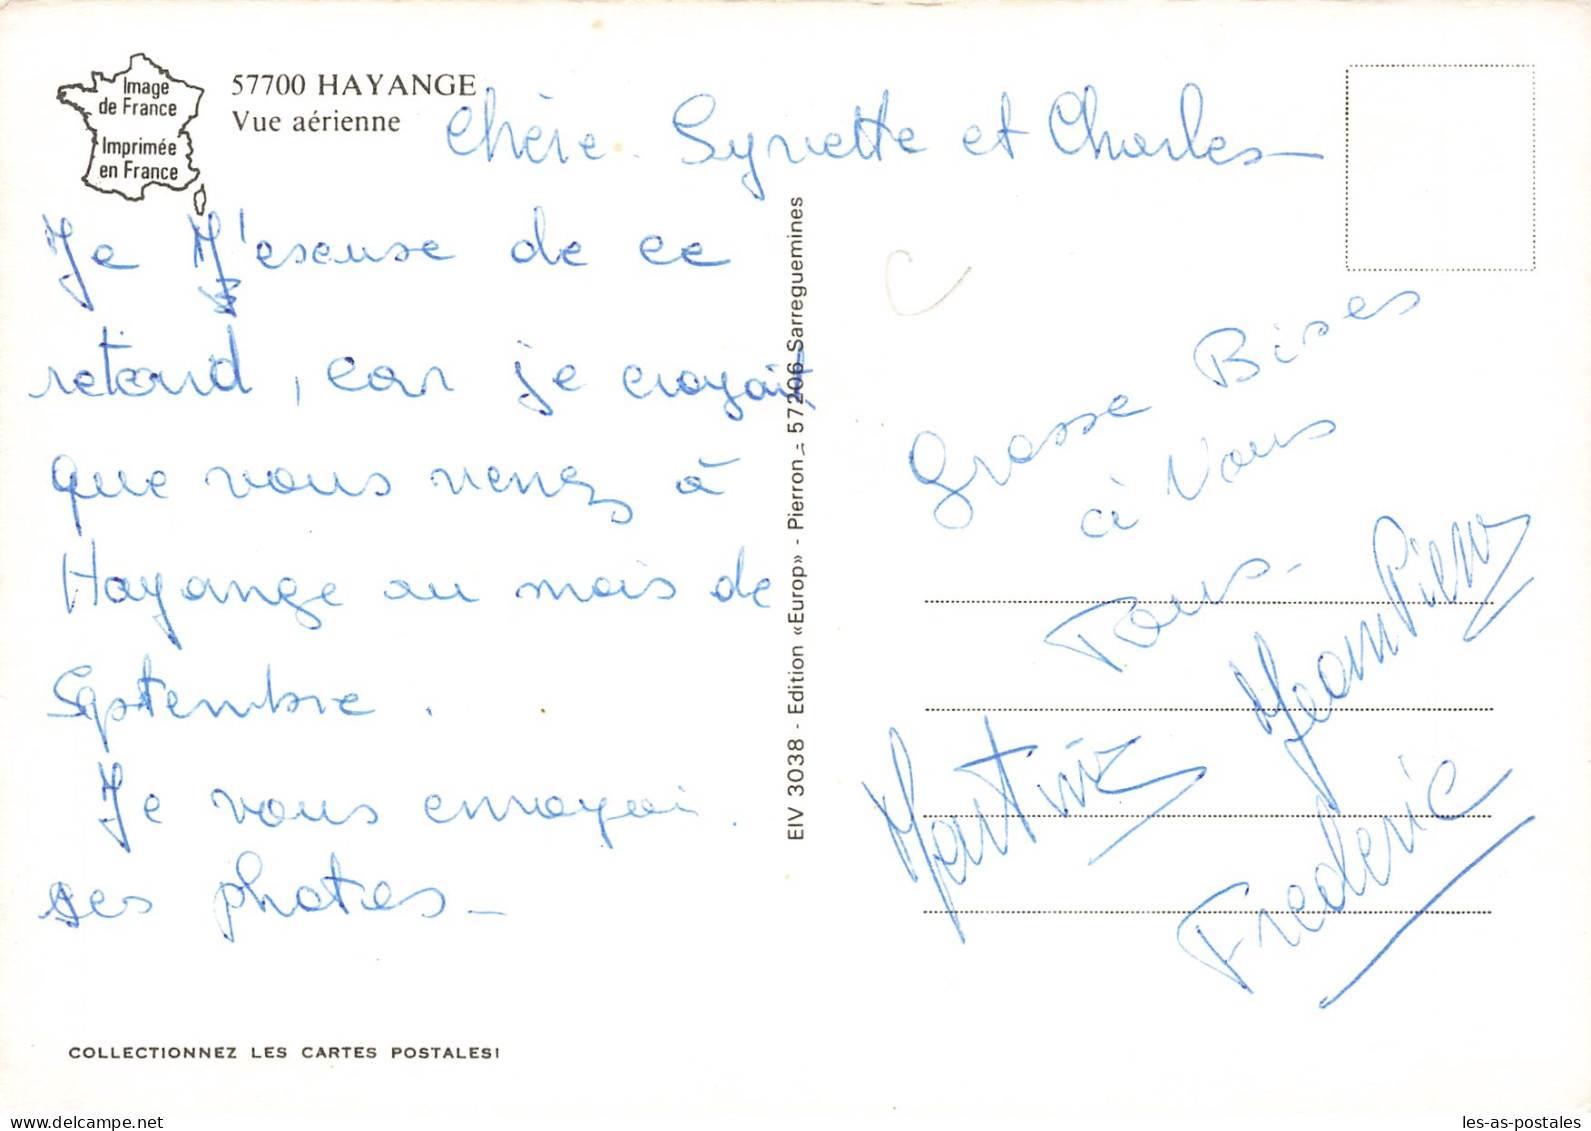 Image
de France
Imprimée
en France
57700 HAYANGE
Vue aérienne
Chère. Synette et Charles
Je M'escuse de ce
retard, car je croyait
que vous venez à
Hayange au mois de
Septembre.
Je vous envoyai
ses photos
EIV 3038 - Edition «Europ» - Pierron - 57206 Sarreguemines
Grosse Bises
à Vous
Tous.
Jean Pierre
Martine
Frederic
COLLECTIONNEZ LES CARTES POSTALES!
www.delcampe.net
les-as-postales